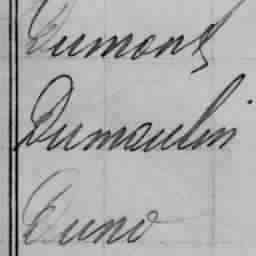 Dumont
Dumoulin
Duno